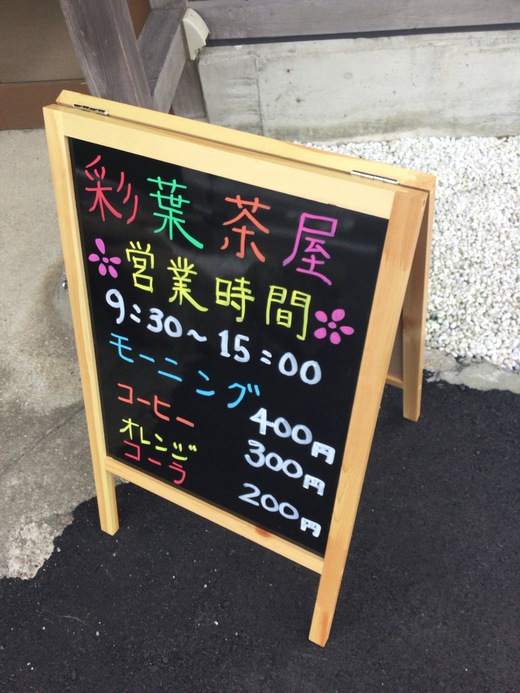 彩葉茶屋
営業時間
9:30～15:00
モーニング 400円
コーヒー 300円
オレンジ
コーラ 200円